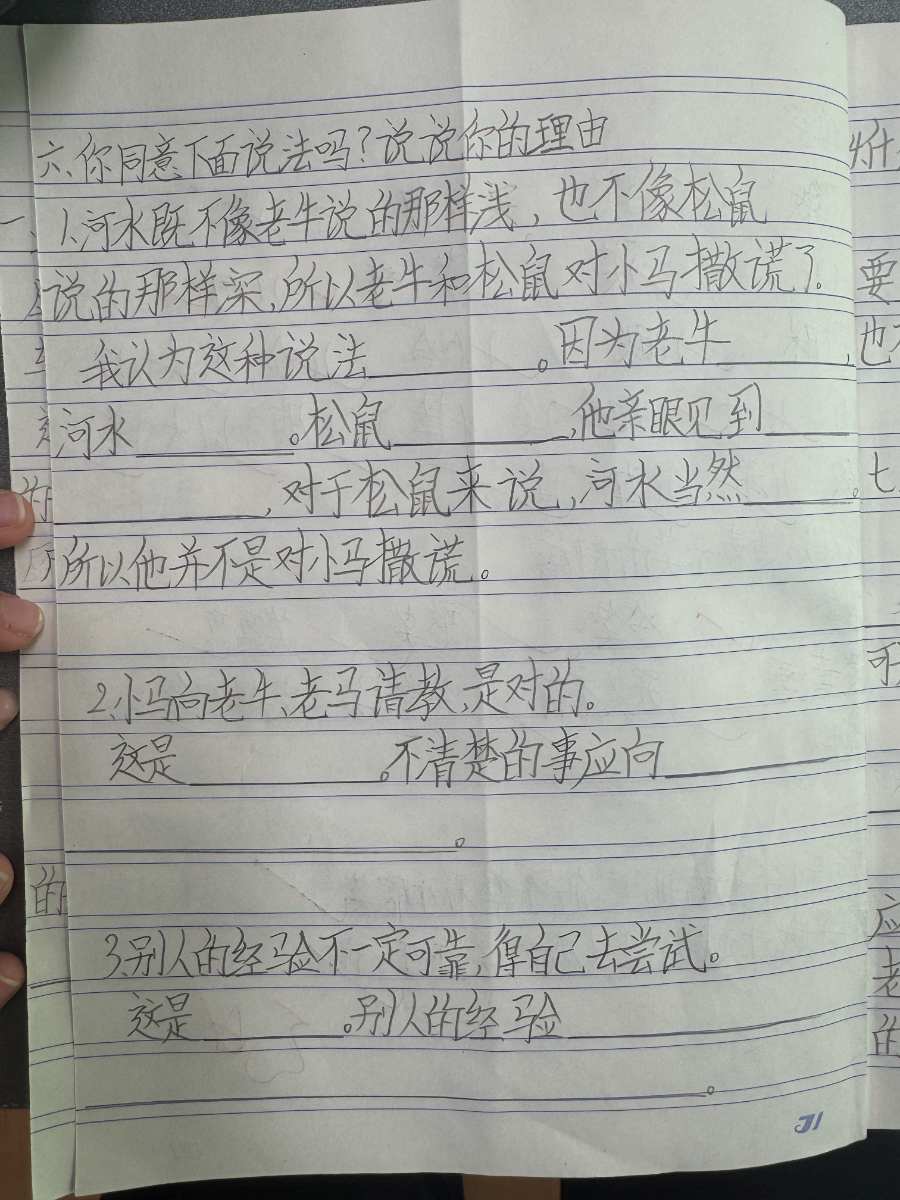 六、你同意下面说法吗？说说你的理由
1、河水既不像老牛说的那样浅，也不像松鼠
说的那样深，所以老牛和松鼠对小马撒谎了。
我认为这种说法________。因为老牛________，
河水________。松鼠________，他亲眼见到____
________，对于松鼠来说，河水当然______。
所以他并不是对小马撒谎。
2、小马向老牛、老马请教，是对的。
这是________。不清楚的事应向________
________________。
3、别人的经验不一定可靠，得自己去尝试。
这是______。别人的经验____________
________________________。
什
要
也
七
可
应
老
的
一、
的